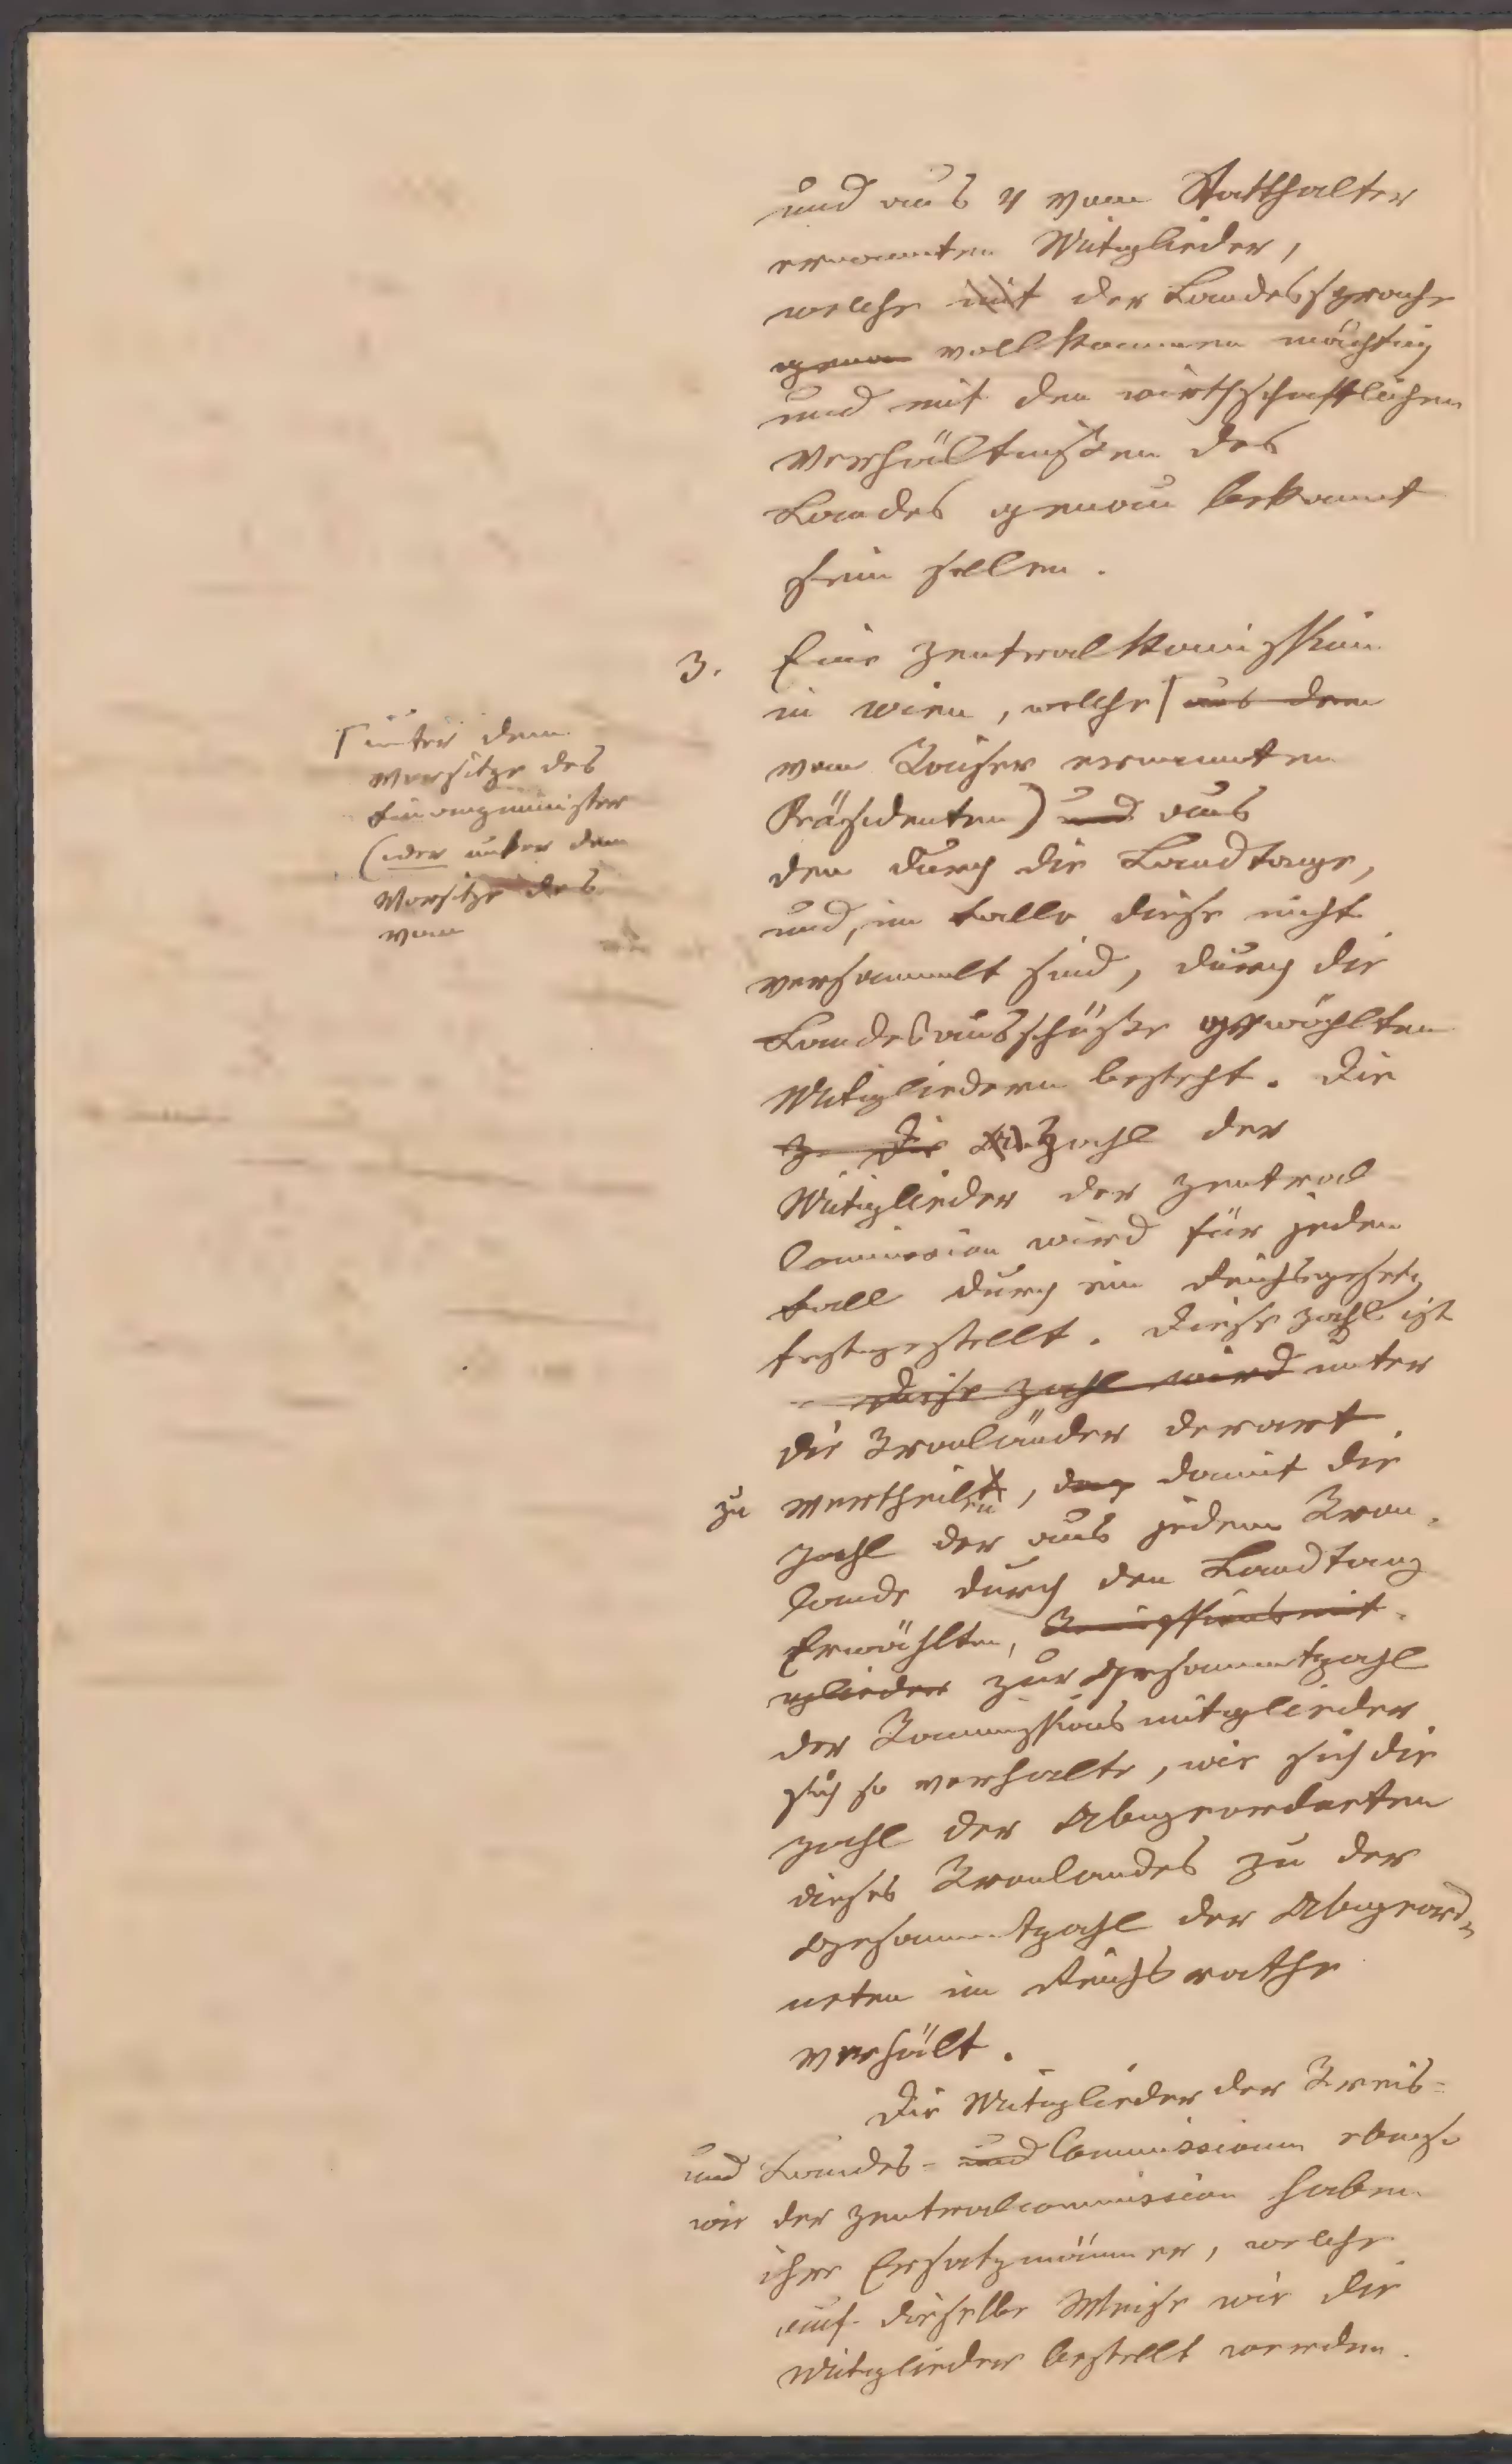 und aus 4 vom Statthalter
ernannten Mitglieder,
welche mit der Landessprache
genau vollkommen mächtig
und mit den wirthschaftlichen
Verhältnißen des
Landes genau bekannt
sein sollen.
3. Eine Zentralkommission
in Wien, welche ⌈ aus dem
⌈ unter dem
Vorsitze des
Finanzminister
(oder unter dem
Vorsitze des
vom
vom Kaiser ernannten
Präsidenten) und aus
den durch die Landtage,
und, im Falle diese nicht
versammelt sind, durch die
Landesausschüße gewählten
Mitgliedern besteht. Die
Z. Die Anzahl der
Mitglieder der Zentral
Commission wird für jeden
Fall durch ein Reichsgesetz
festgestellt. Diese Zahl ist
Diese Zahl wird unter
die Kronländer derart
zu vertheilen, daß damit die
Zahl der aus jedem Kron-
lande durch den Landtag
Erwählten, Kommissionsmit-
glieder zur Gesammtzahl
der Kommissionsmitglieder
sich so verhalte, wie sich die
Zahl der Abgeordneten
dieses Kronlandes zu der
Gesammtzahl der Abgeord-
neten im Reichsrathe
verhält.
Die Mitglieder der Kreis-
und Landes- und Commissionen ebenso
wie der Zentralcommission haben
ihre Ersatzmänner, welche
auf dieselbe Weise wie die
Mitglieder bestellt werden.